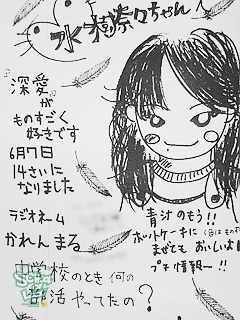 水樹奈々ちゃん
深愛
が
ものすごく
好きです
6月7日
14さいに
なりました
ラジオネーム
かれん まる
青汁のもう!!
ホットケーキに
まぜても おいしいよ!
プチ情報ー!!
中学校のとき 何の
部活やってたの?